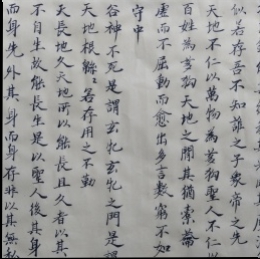 似若存吾不知誰之子象帝之先
天地不仁以萬物為芻狗聖人不仁以
百姓為芻狗天地之間其猶橐籥
虛而不屈動而愈出多言數窮不如
守中
谷神不死是謂玄牝玄牝之門是謂
天地根綿綿若存用之不勤
天長地久天地所以能長且久者以其
不自生故能長生是以聖人後其身
而身先外其身而身存非以其無私